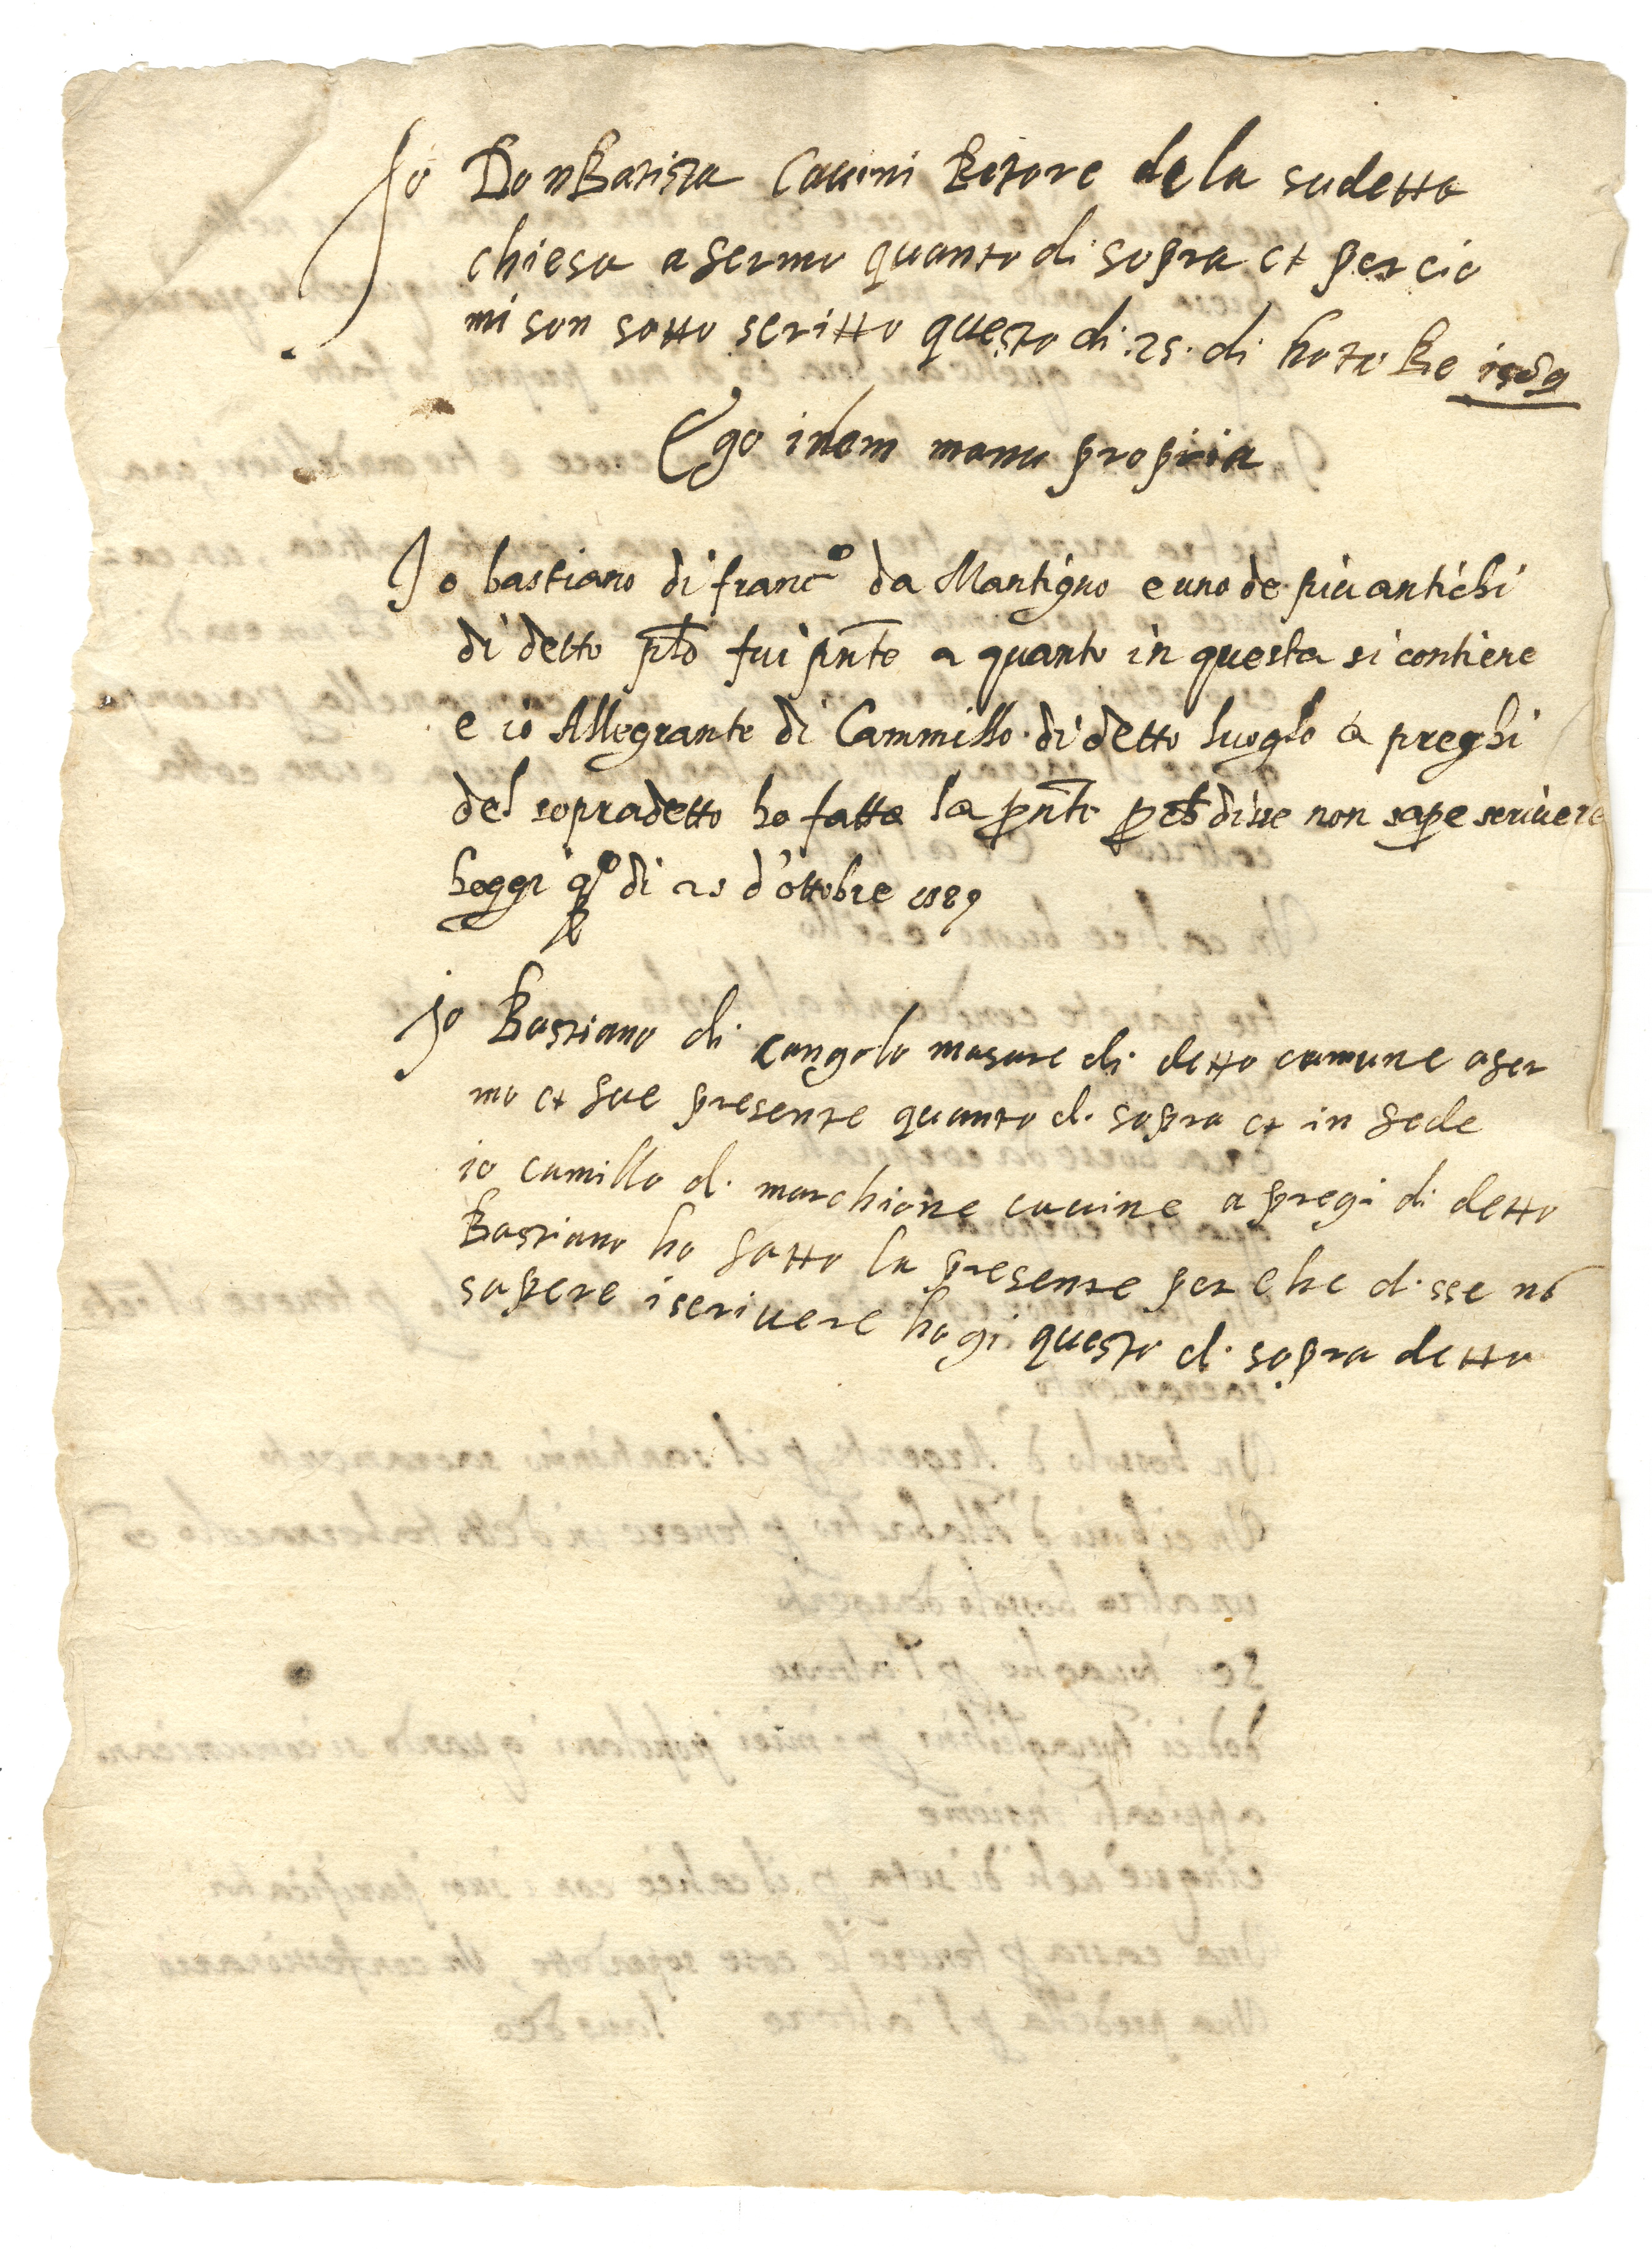 Io Don Batista Cavini Retore de la sudetta
chiesa afermo quanto di sopra et per cio
mi son sotto scritto questo di .25. di hoto bre 1589
Ego idem manu propria
Io bastiano di franc.º da Mantigno e uno de piu antichi
di detto plõ fui pñte a quanto in questa si contiene
e io Allegrante di Cammillo di detto luoglo a preghi
del sopradetto ho fatta la pñte pche disse non sape scrivere
hoggi qº di 25 d'ottobre 1589
io Bastiano di Cangolo masare di detto comune afer
mo et fue presente quanto di sopra et in fede
io camillo di marchione cavine a pregi di detto
Bastiano ho fatto la presente per che disse nõ
sapere iscrivere hogi questo di sopra detto